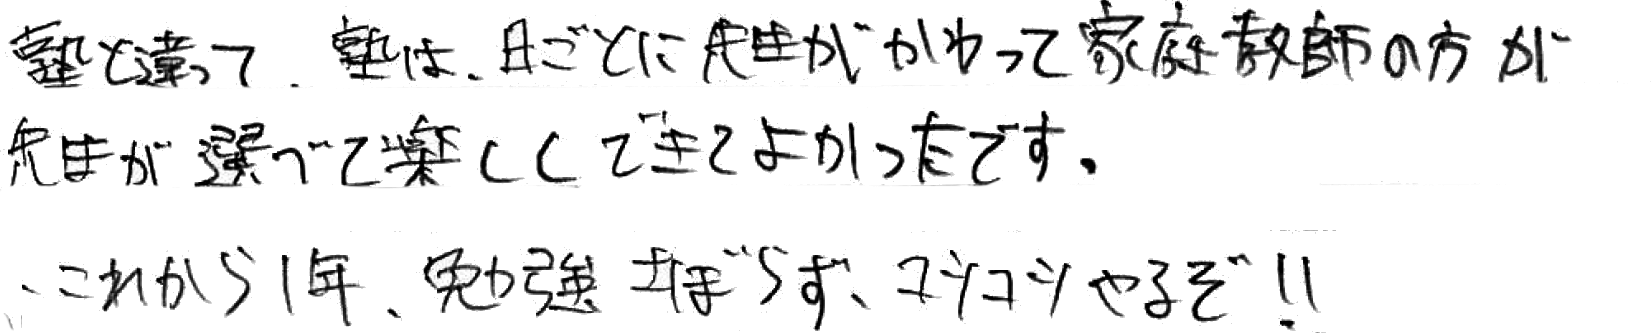 塾と違って、塾は、日ごとに先生がかわって家庭教師の方が
先生が選べて楽しくできてよかったです。
、これから1年、勉強さぼらず、コツコツやるぞ!!